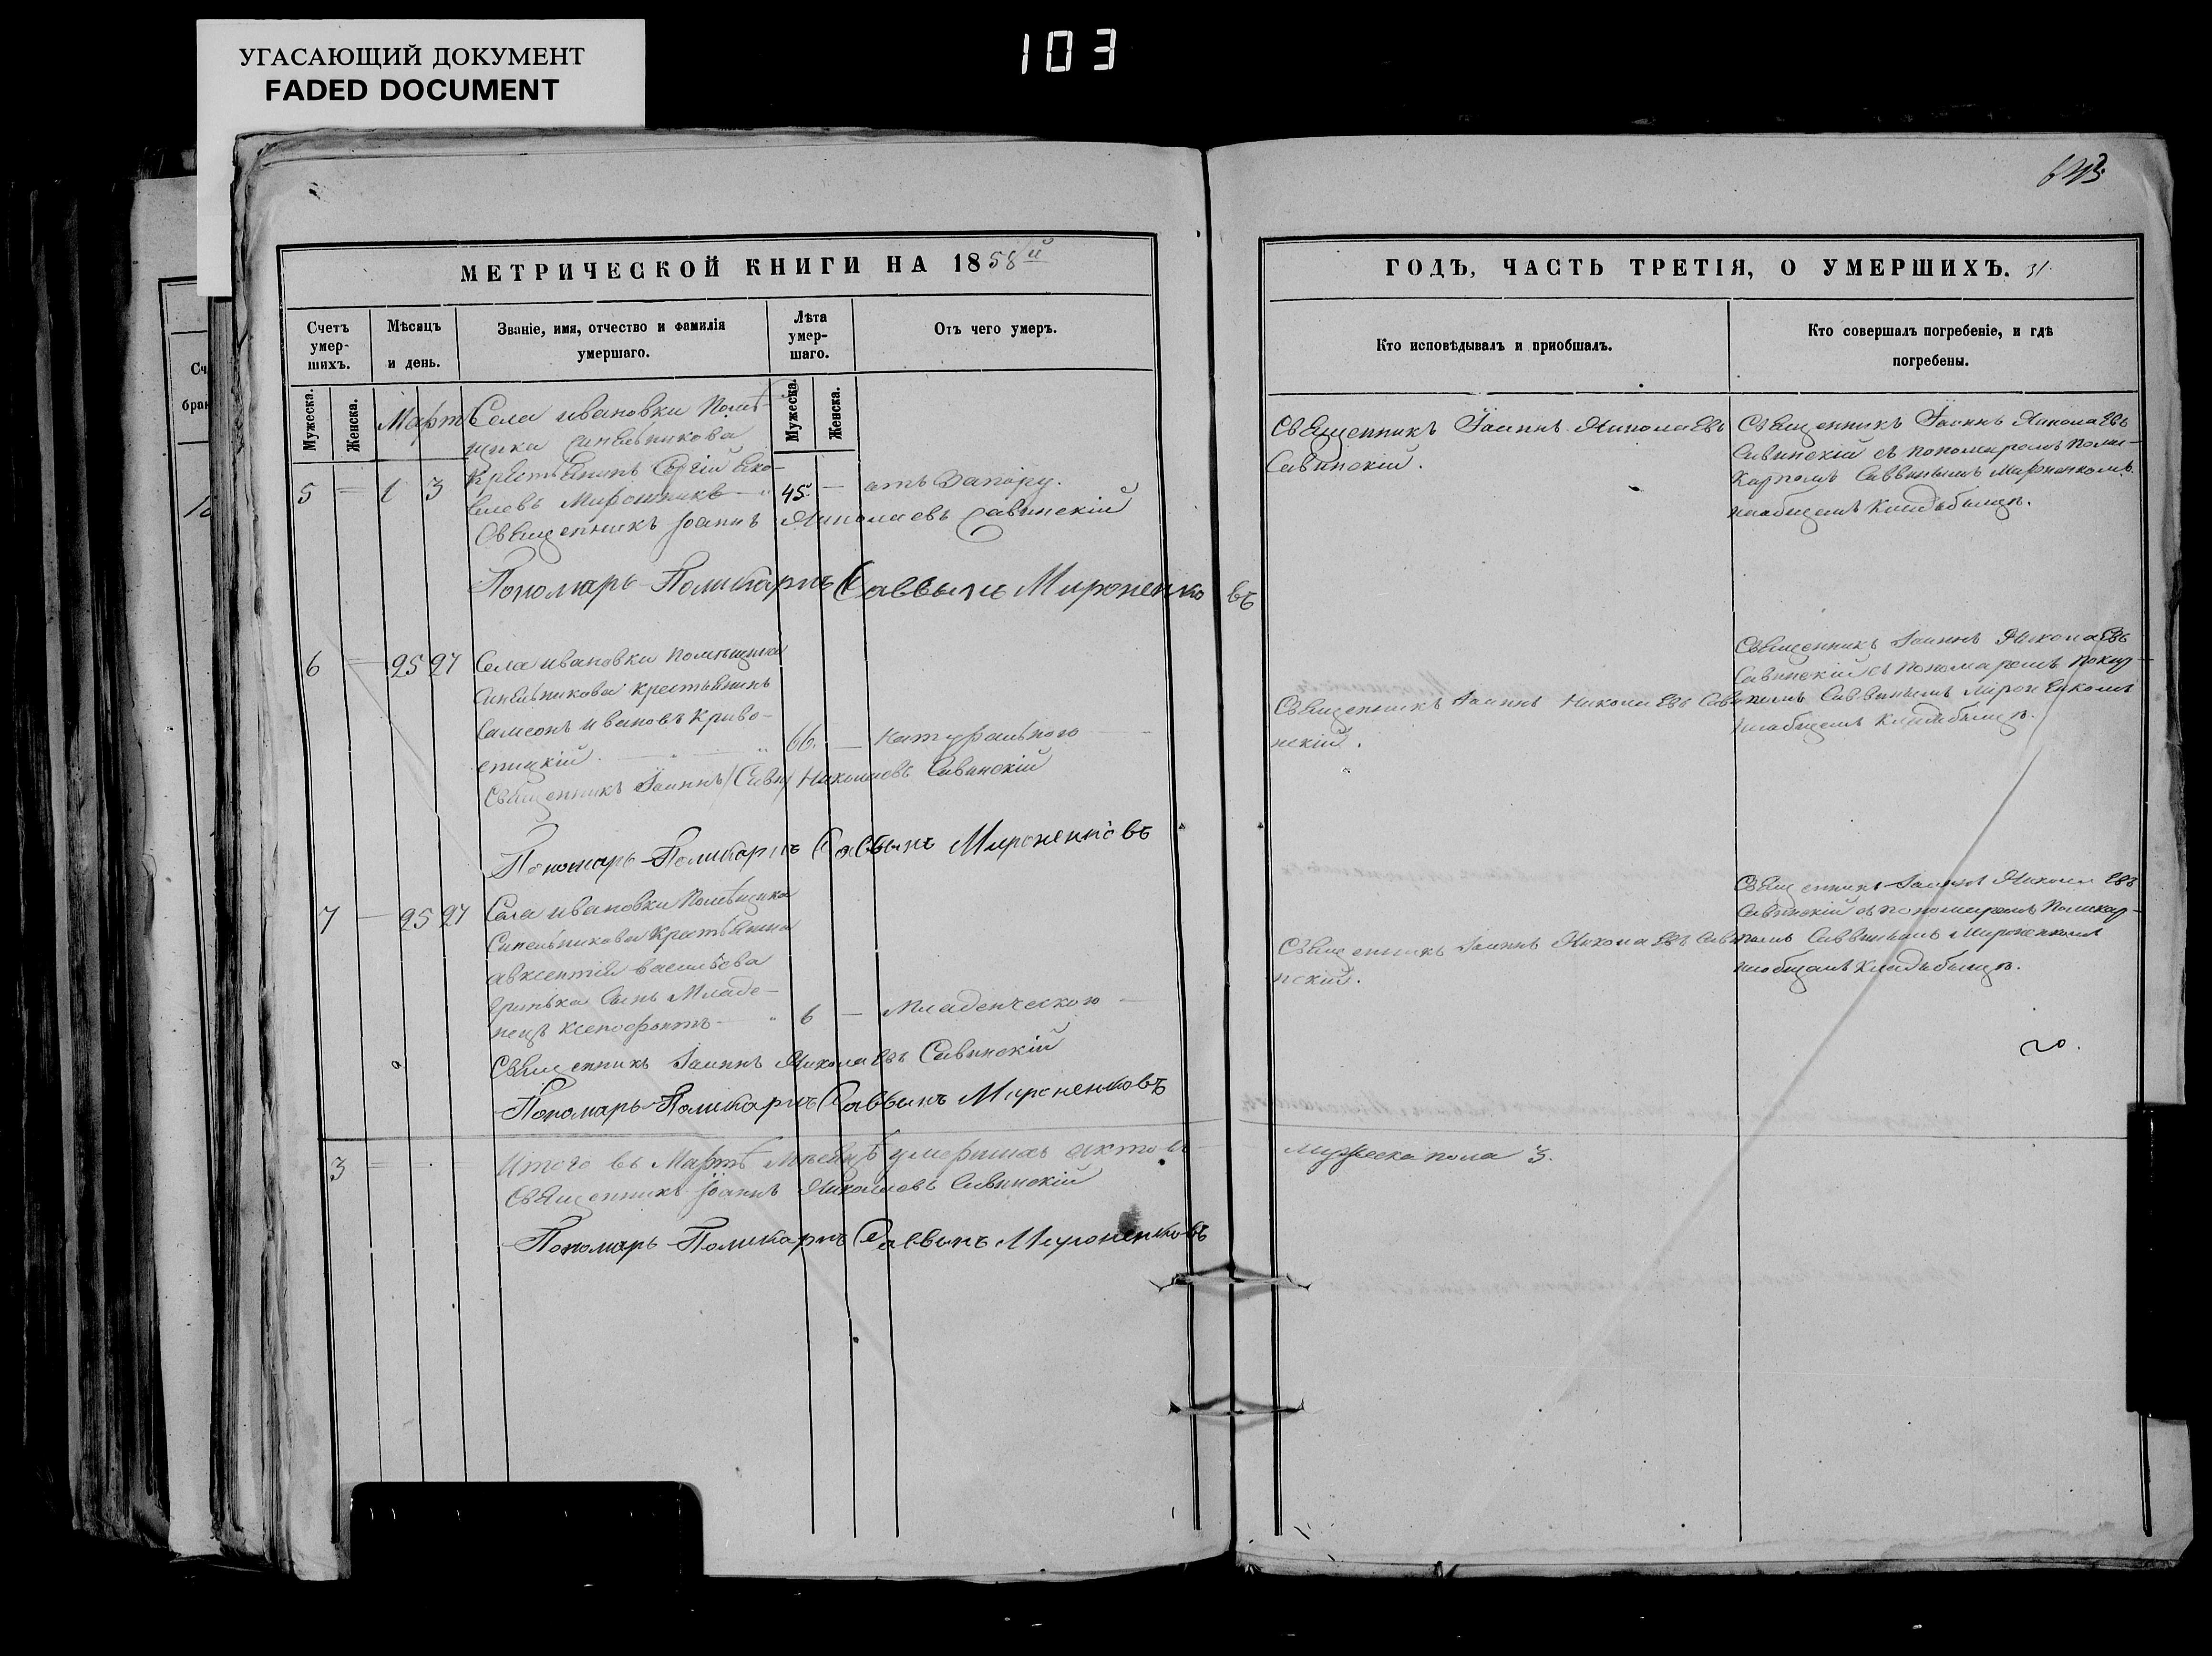 УГАСАЮЩИЙ ДОКУМЕНТ
FADED DOCUMENT
103
643
МЕТРИЧЕСКОЙ КНИГИ НА 1858й
Счетъ умер-шихъ.
Мѣсяцъ и день.
Званіе, имя, отчество и фамилія умершаго.
Лѣта умер-шаго.
Отъ чего умеръ.
Мужеска.
Женска.
Мужеска.
Женска.
Мартъ
Села ивановки помѣ-
щика Синельникова
Крестьянинъ Сергій Яко-
5 1 3
влевъ Мирошникъ 45 — отъ запору.
Священникъ Іоаннъ Николаевъ Савинскій
Пономарь Поликарпъ Саввынъ Мироненковъ
6 — 25 27 Села ивановки помѣщика
Синельникова крестьянинъ
Самсонъ ивановъ Криво-
спицкій. 66. — натурального
Священникъ Іоаннъ Николаевъ Савинскій
Пономарь Поликарпъ Саввынъ Мироненковъ
7 — 25 27 Села ивановки помѣщика
Синельникова Крестьянина
авксентія васильева
Гринька Сынъ Младе-
нецъ Ксенофонтъ 6 — Младенческою
Священникъ Іоаннъ Николаевъ Савинскій
Пономарь Поликарпъ Саввынъ Мироненковъ
3 Итого въ Мартѣ Мѣсяцѣ умершихъ актовъ
Священникъ Іоаннъ Николаевъ Савинскій
Пономарь Поликарпъ Саввынъ Мироненковъ
ГОДЪ, ЧАСТЬ ТРЕТІЯ, О УМЕРШИХЪ. 31.
Кто исповѣдывалъ и приобшалъ.
Кто совершалъ погребеніе, и гдѣ погребены.
Священникъ Іоаннъ Николаевъ
Савинскій.
Священникъ Іоаннъ Николаевъ
Савинскій съ пономаремъ Поли-
карпомъ Саввинымъ Мироненкомъ
наобщемъ Кладбыщѣ.
Священникъ Іоаннъ Николаевъ Сави-
нскій.
Священникъ Іоаннъ Николаевъ
Савинскій съ пономаремъ
Саввинымъ Мироненкомъ
наобщемъ кладбыщѣ.
Священникъ Іоаннъ Николаевъ Сави-
нскій.
Священникъ Іоаннъ Николаевъ
Савинскій съ пономаремъ Поликар-
помъ Саввинымъ Мироненкомъ
наобщемъ Кладьбыщѣ.
Мужеска пола 3.